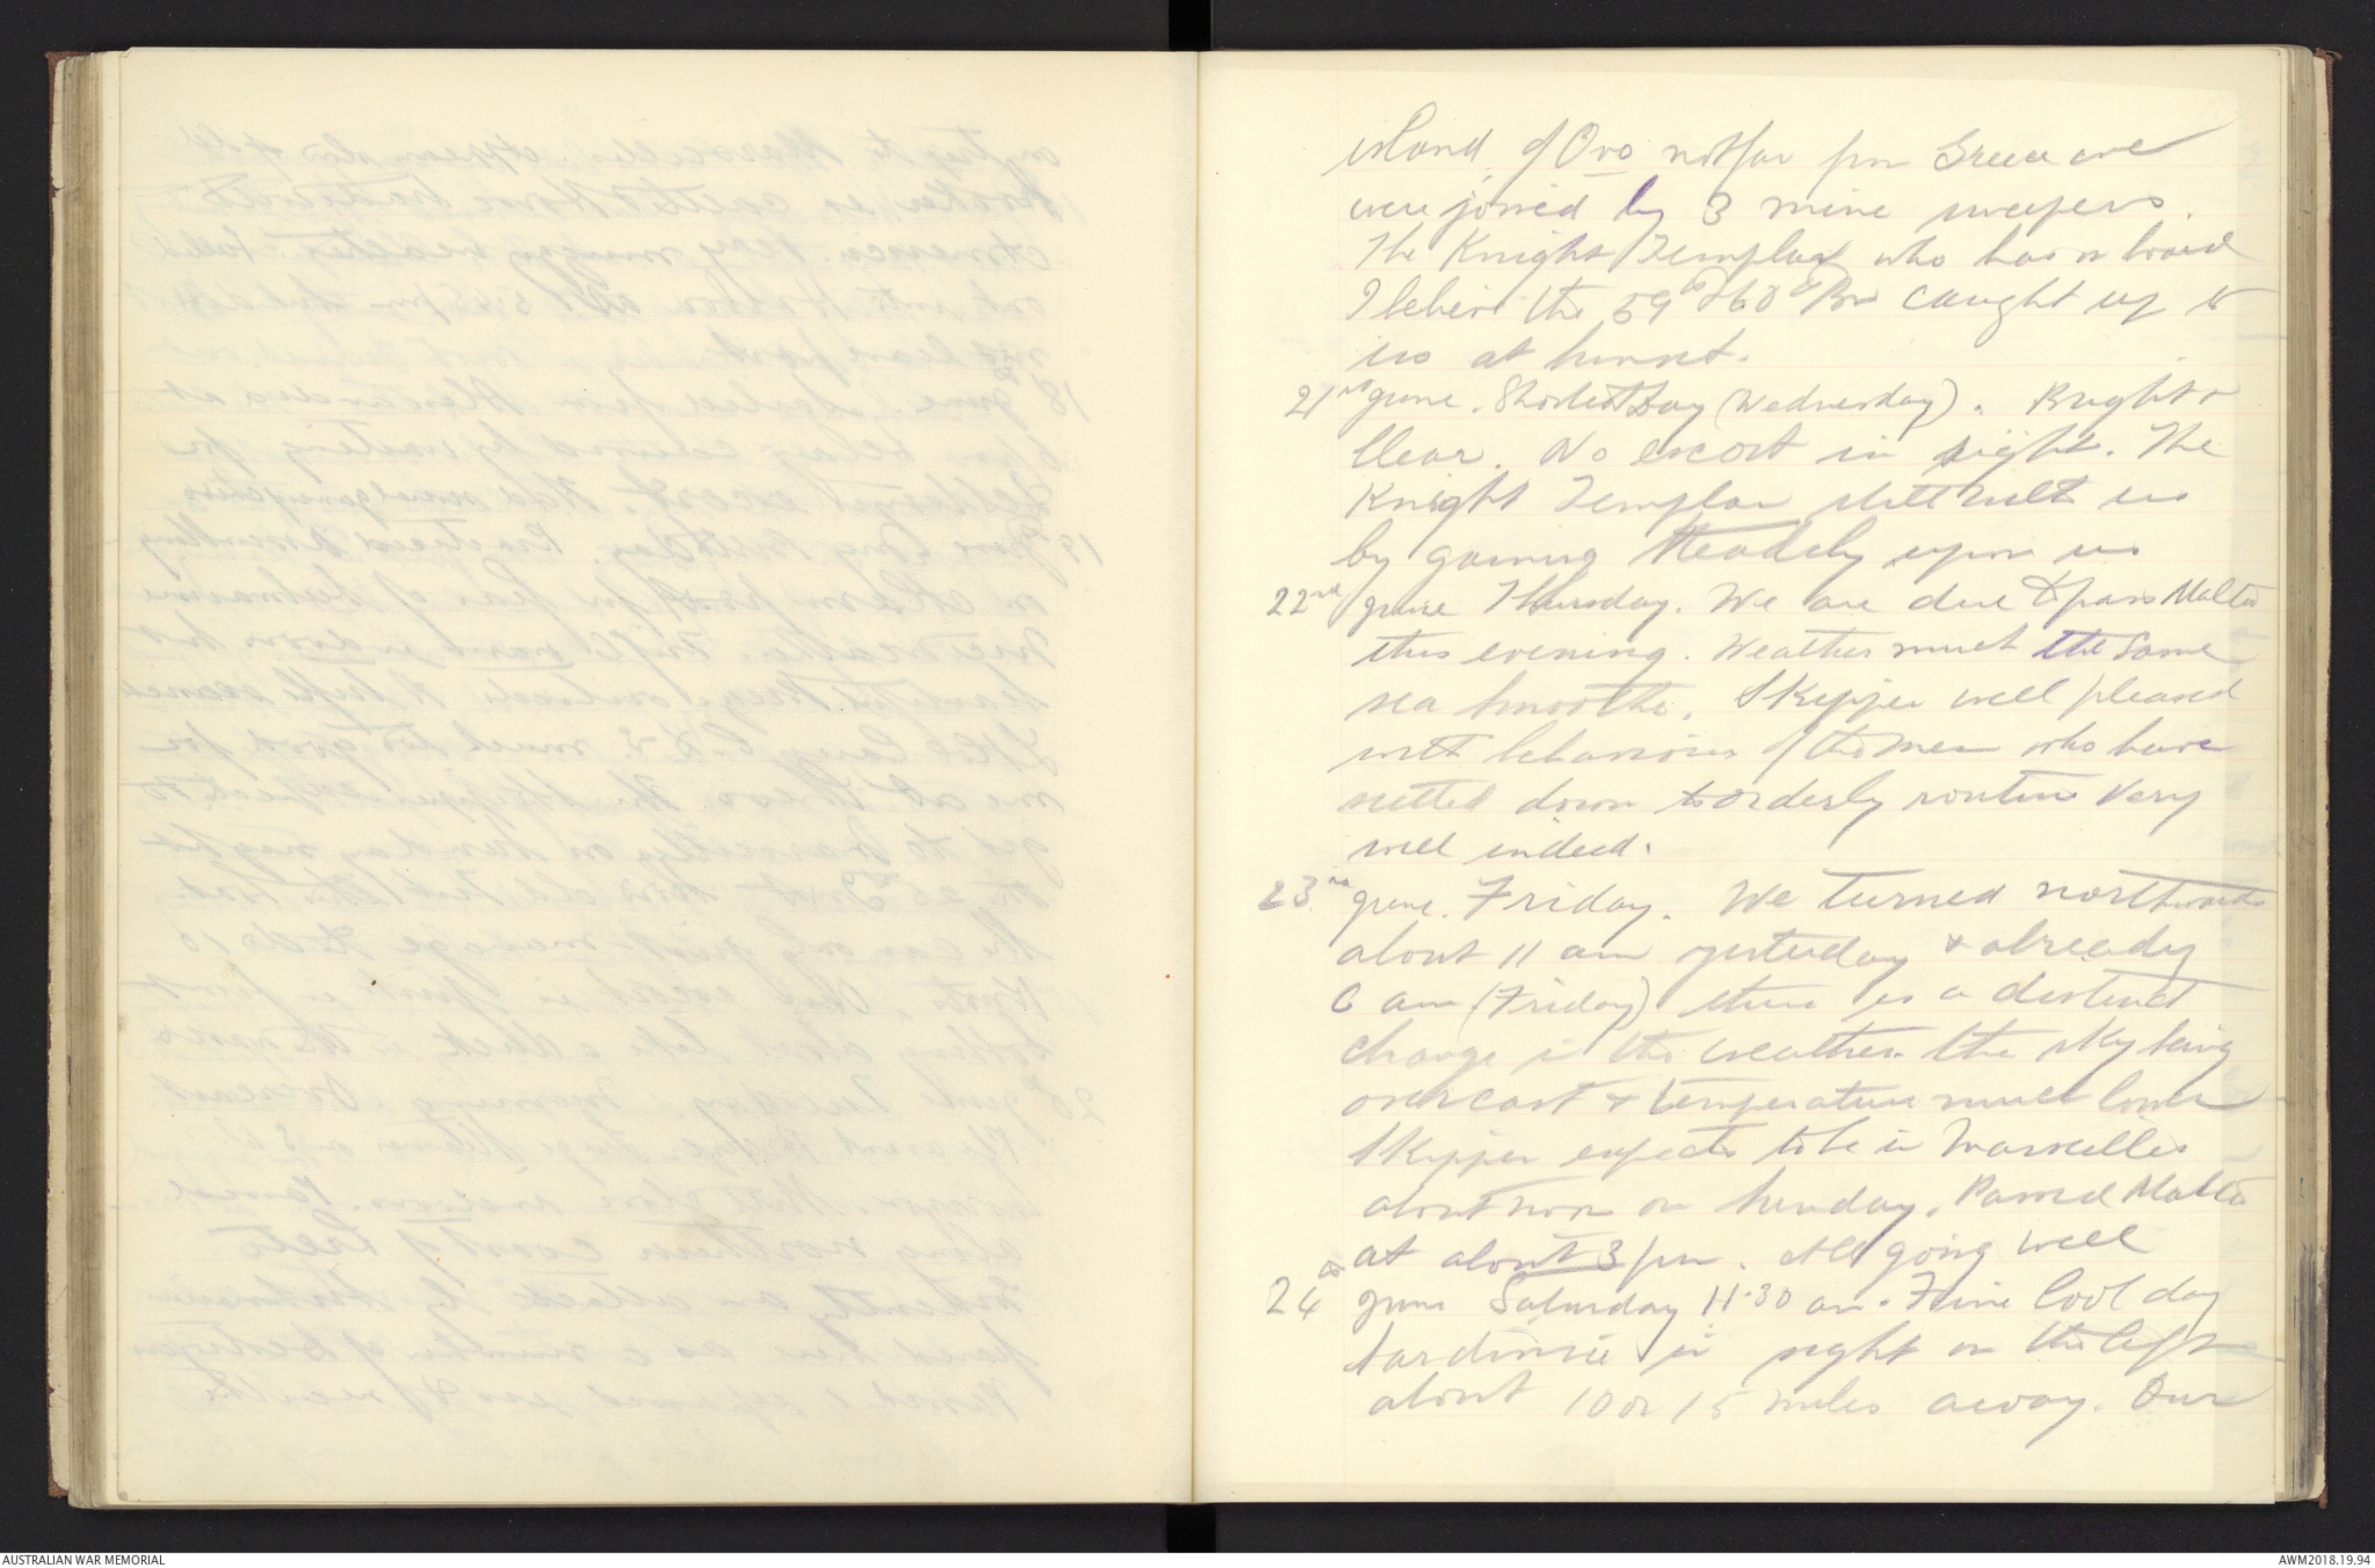 island of Ovo not far frm Greece we
were joined by 3 mine sweepers.
The Knight Templar who has on board
I believe the 59th & 60th Bns caught up to
us at sunset.
21st June. Shortest Day (Wednesday). Bright &
Clear. No escort in sight. The
Knight Templar still with us
by gaining steadily upon us
22nd June Thursday. We are due to pass Malta
this evening. Weather much the same
sea smooth. Skipper well pleased
with behaviour of the men who have
settled down to orderly routine very
well indeed.
23rd June. Friday. We turned northwards
about 11 am yesterday & already
6 am (Friday) there is a distinct
change in the weather the sky being
overcast & temperature much lower
Skipper expects to be in Marseilles
about noon on Sunday. Passed Malta
at about 3 pm. All going well
24th June Saturday 11.30 am. Fine Cool day
Sardinia in sight on the left
about 10 or 15 miles away. Our
AUSTRALIAN WAR MEMORIAL
AWM2018.19.94